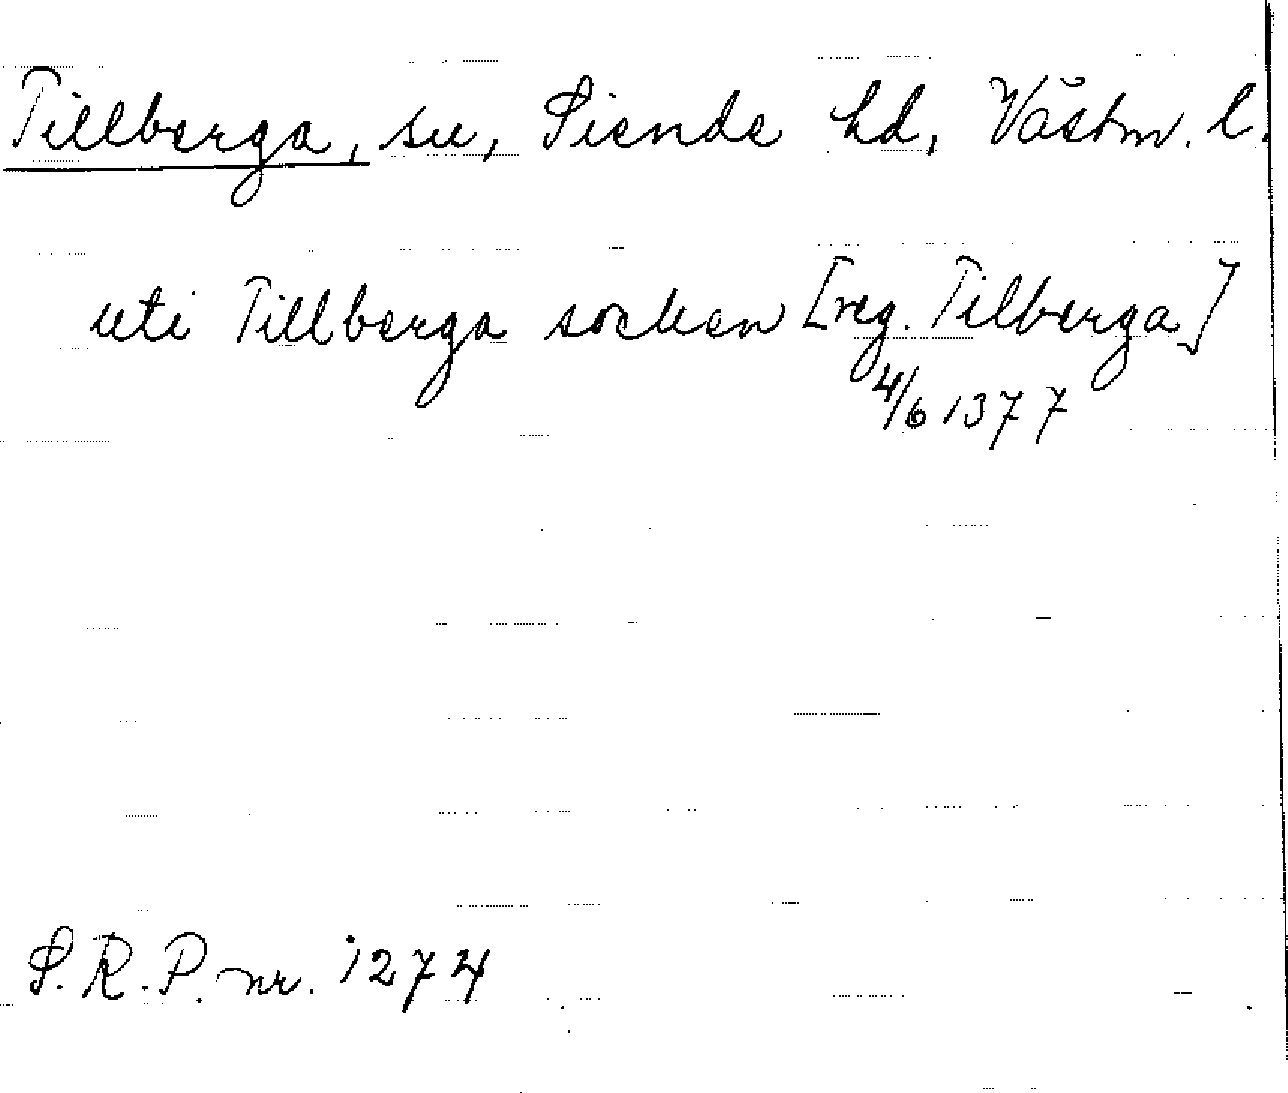 Tillberga, sn, Siende hd, Västm. l.
uti Tillberga socken [reg. Tilberga]
4/6 1377
S. R. P. nr. 1274